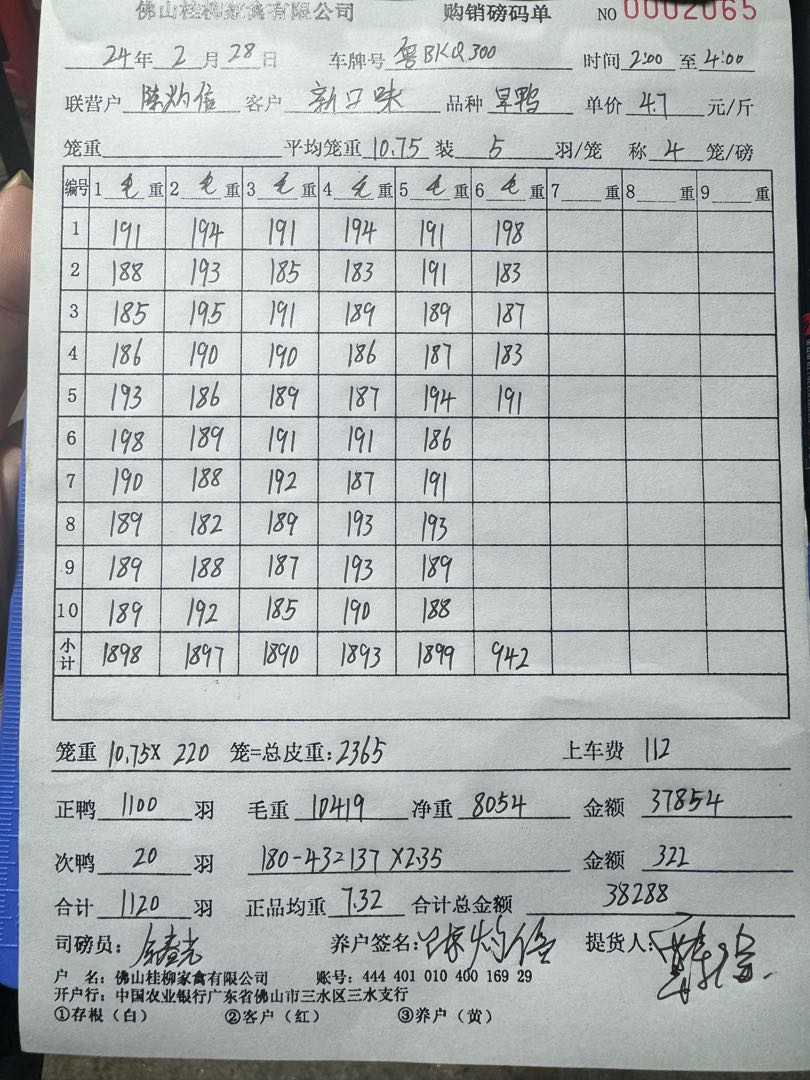 佛山桂柳家禽有限公司 购销磅码单 NO 0002065
24年 2月 28日 车牌号 粤BKQ300 时间 2:00 至 4:00
联营户 陈灼信 客户 新口味 品种 旱鸭 单价 4.7 元/斤
笼重 平均笼重 10.75 装 5 羽/笼 称 4 笼/磅
编号 1 毛 重 2 毛 重 3 毛 重 4 毛 重 5 毛 重 6 毛 重 7 重 8 重 9 重
1 191 194 191 194 191 198
2 188 193 185 183 191 183
3 185 195 191 189 189 187
4 186 190 190 186 187 183
5 193 186 189 187 194 191
6 198 189 191 191 186
7 190 188 192 187 191
8 189 182 189 193 193
9 189 188 187 193 189
10 189 192 185 190 188
小计 1898 1897 1890 1893 1899 942
笼重 10.75X 220 笼=总皮重:2365 上车费 112
正鸭 1100 羽 毛重 10419 净重 8054 金额 37854
次鸭 20 羽 180-43=137X2.35 金额 322
合计 1120 羽 正品均重 7.32 合计总金额 38288
司磅员: 养户签名: 陈灼信 提货人:
户 名: 佛山桂柳家禽有限公司 账号: 444 401 010 400 169 29
开户行: 中国农业银行广东省佛山市三水区三水支行
①存根(白) ②客户(红) ③养户(黄)